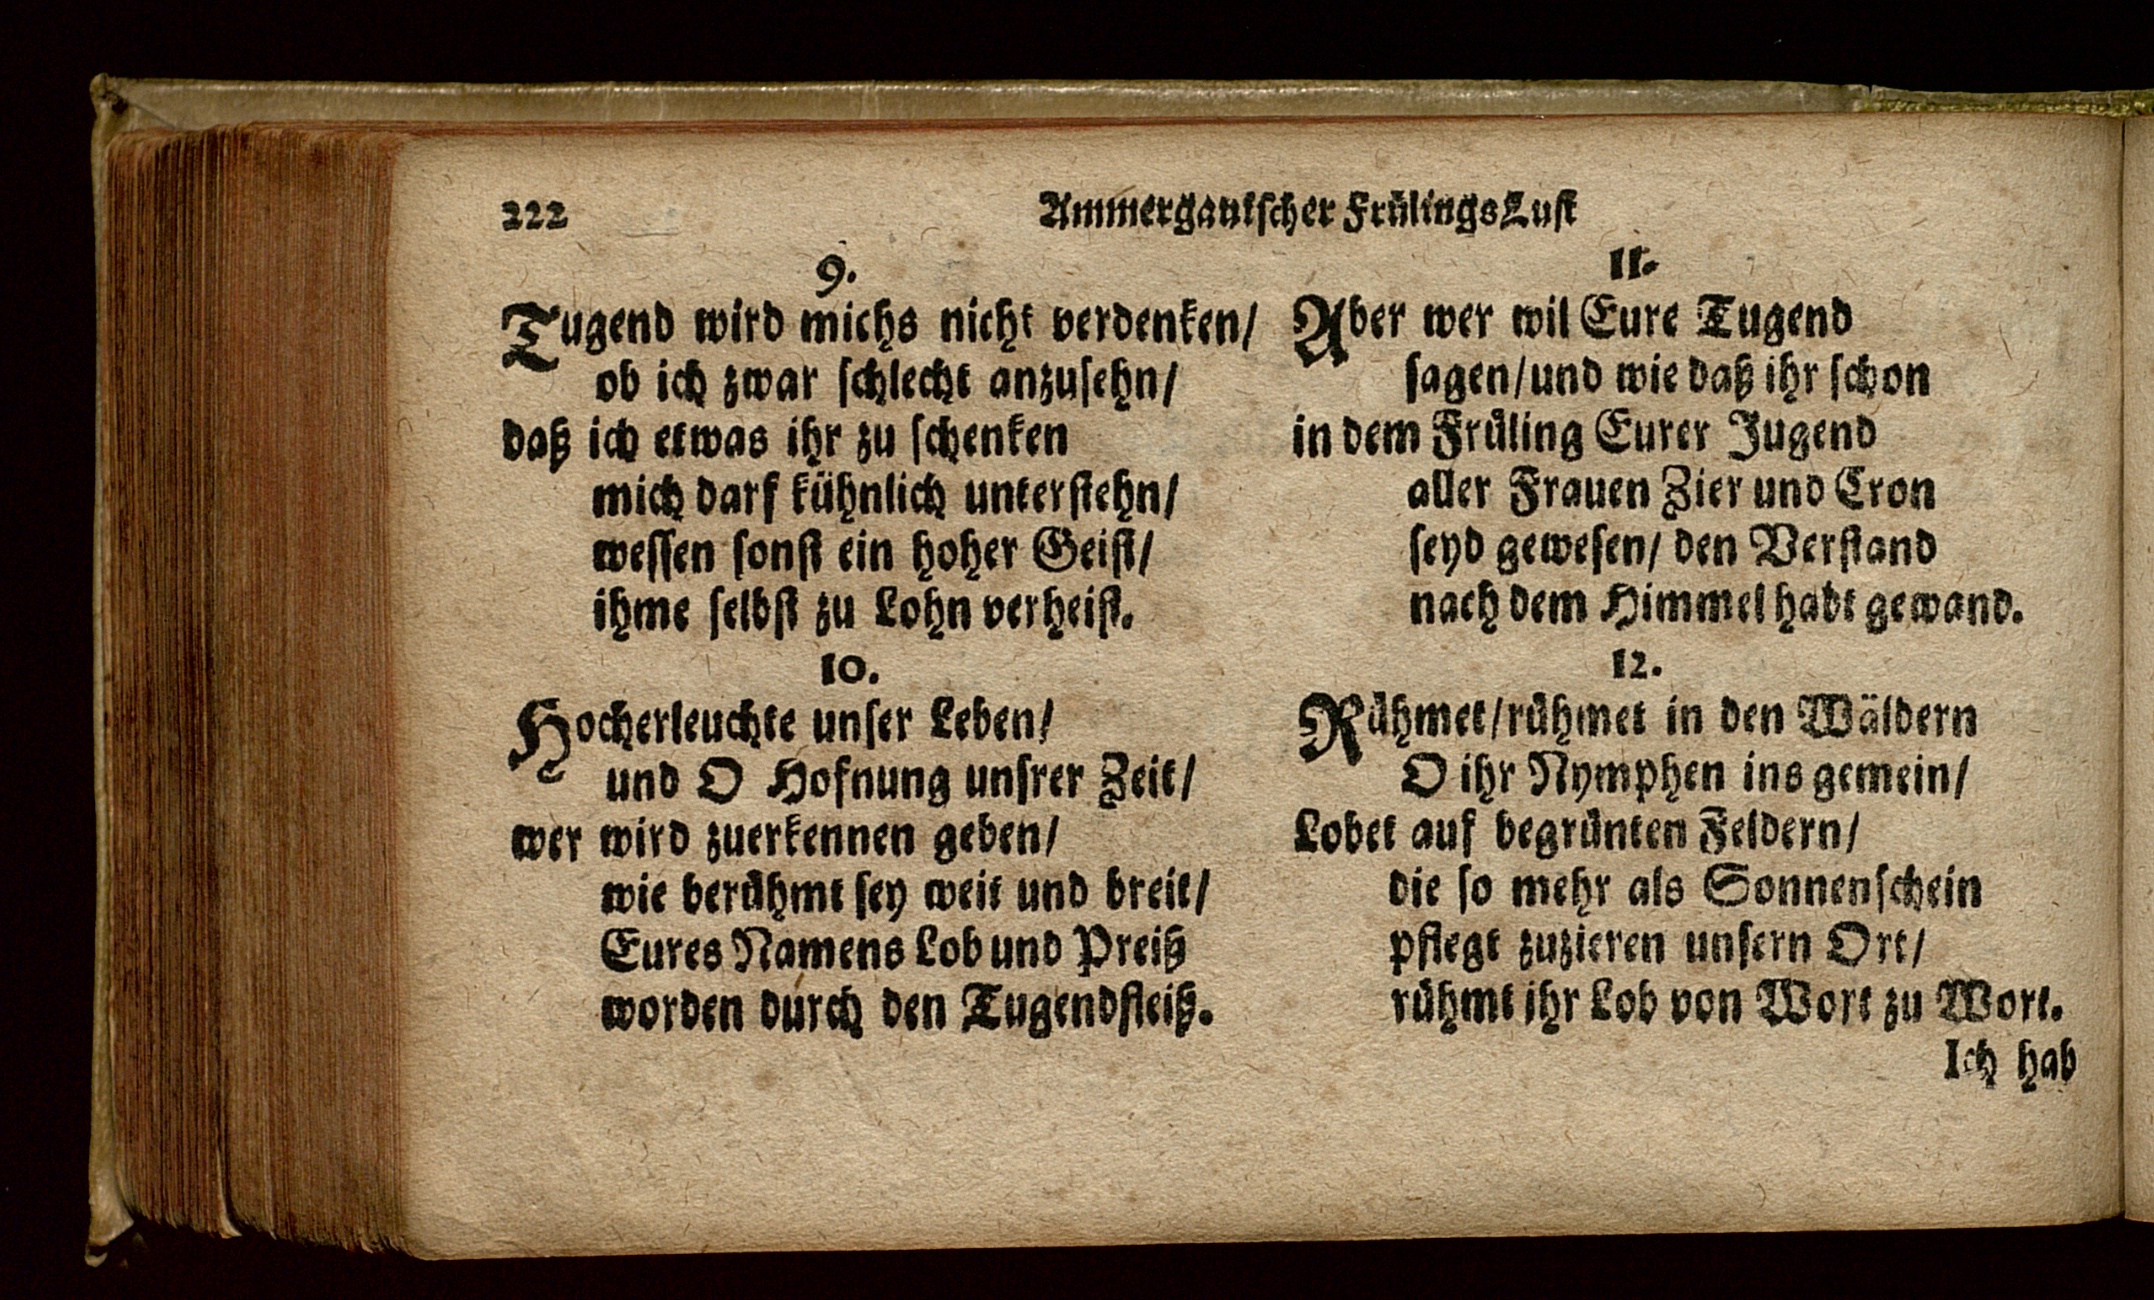 222
Ammergauischer FrůlingsLust
9.
Tugend wird michs nicht verdenken/
ob ich zwar schlecht anzusehn/
daß ich etwas ihr zu schenken
mich darf kühnlich unterstehn/
wessen sonst ein hoher Geist/
ihme selbst zu Lohn verheist.
10.
Hocherleuchte unser Leben/
und O Hofnung unsrer Zeit/
wer wird zuerkennen geben/
wie berůhmt sey weit und breit/
Eures Namens Lob und Preiß
worden durch den Tugendfleiß.
11.
Aber wer wil Eure Tugend
sagen/und wie daß ihr schon
in dem Frůling Eurer Jugend
aller Frauen Zier und Cron
seyd gewesen/ den Verstand
nach dem Himmel habt gewand.
12.
Růhmet/růhmet in den Wäldern
O ihr Nymphen ins gemein/
Lobet auf begrůnten Feldern/
die so mehr als Sonnenschein
pflegt zuzieren unsern Ort/
růhmt ihr Lob von Wort zu Wort.
Ich hab